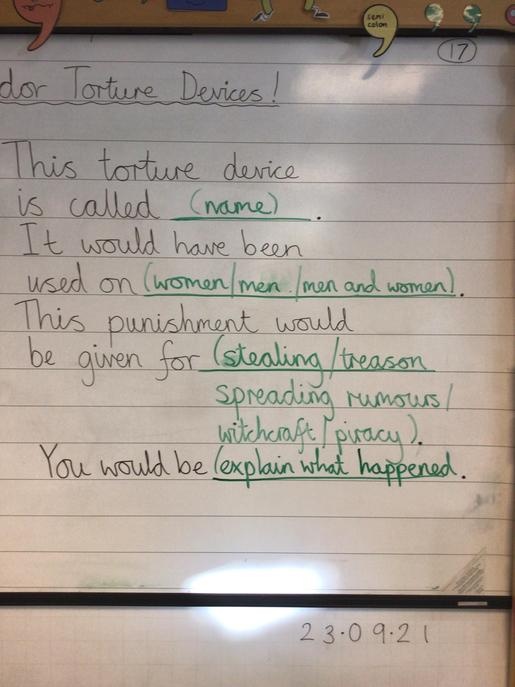 semi
colon
17
dor Torture Devices!
This torture device
is called (name).
It would have been
used on (women/men/men and women).
This punishment would
be given for (stealing/treason
spreading rumours/
witchcraft/piracy).
You would be (explain what happened.
23.09.21